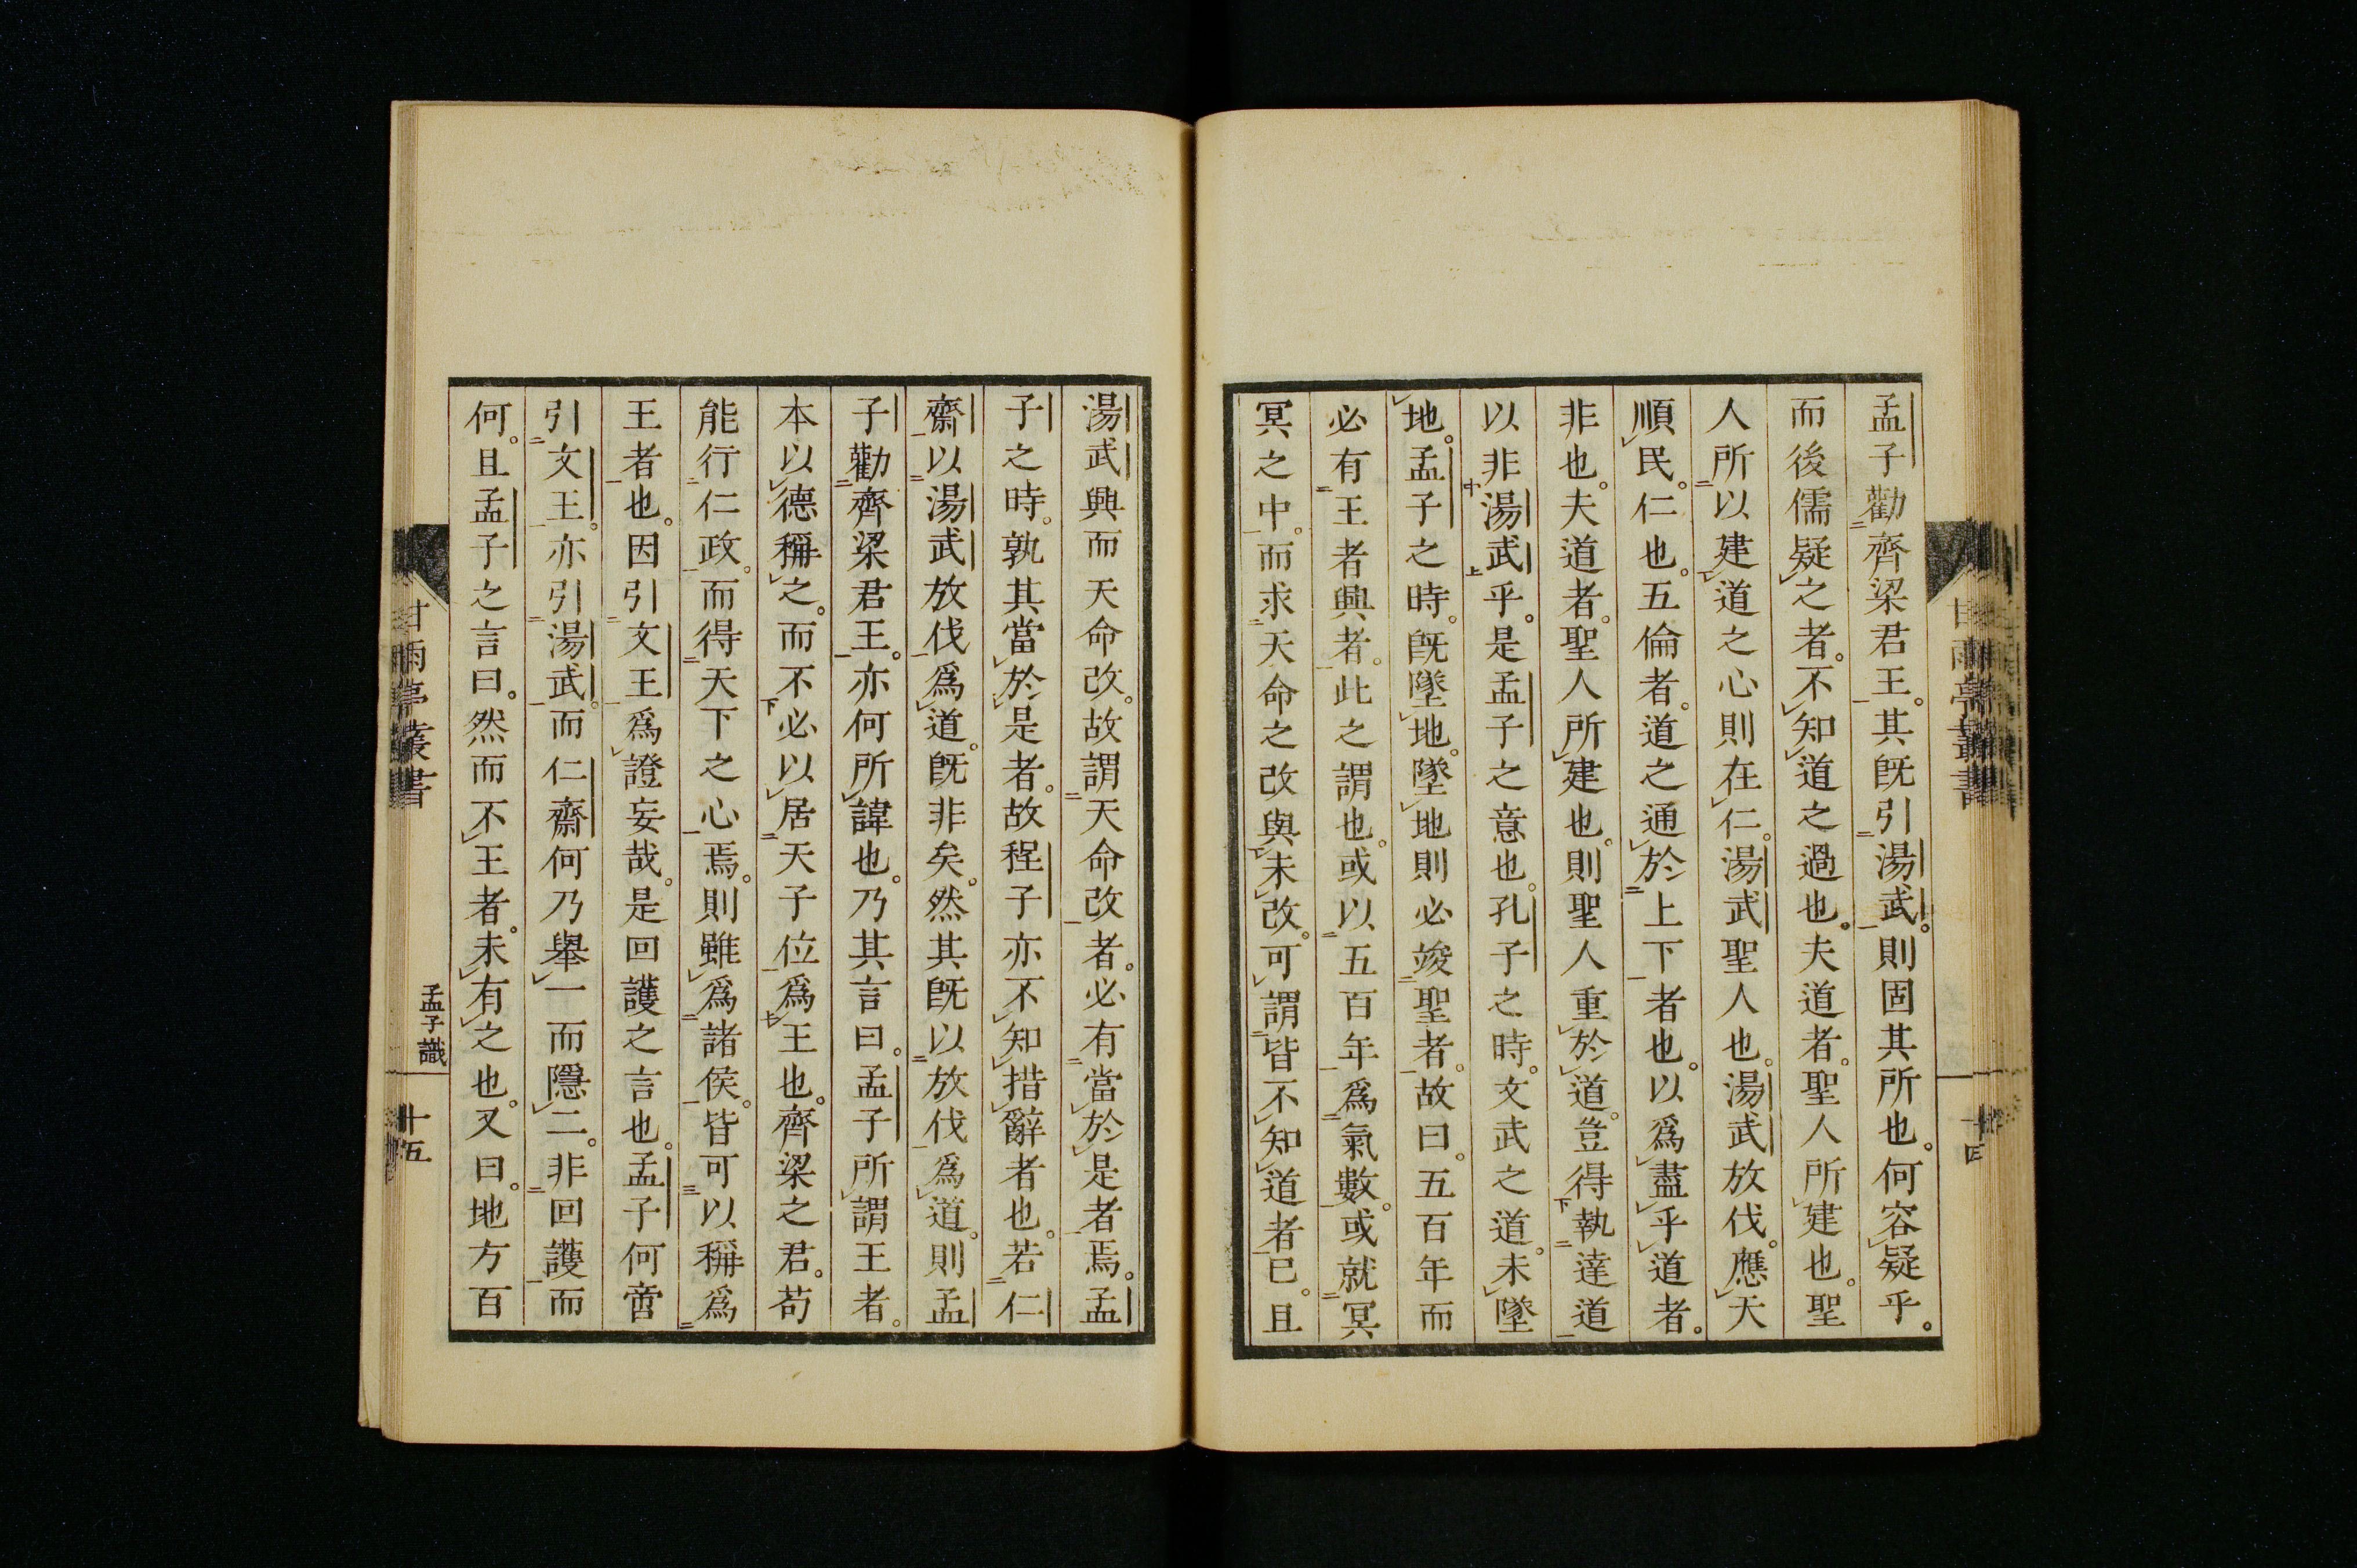 孟子勸齊梁君王。其既引湯武。則固其所也。何容疑乎。
而後儒疑之者。不知道之過也。夫道者。聖人所建也。聖
人所以建道之心則在仁。湯武聖人也。湯武放伐。應天
順民。仁也。五倫者。道之通於上下者也。以爲盡乎道者。
非也。夫道者。聖人所建也。則聖人重於道。豈得執達道
以非湯武乎。是孟子之意也。孔子之時。文武之道。未墜
地。孟子之時。既墜地。墜地則必竢聖者。故曰。五百年而
必有王者興者。此之謂也。或以五百年爲氣數。或就冥
冥之中。而求天命之改與未改。可謂皆不知道者已。且
湯武興而天命改。故謂天命改者。必有當於是者焉。孟
子之時。孰其當於是者。故程子亦不知措辭者也。若仁
齋以湯武放伐爲道。既非矣。然其既以放伐爲道。則孟
子勸齊梁君王。亦何所諱也。乃其言曰。孟子所謂王者。
本以德稱之。而不必以居天子位爲王也。齊梁之君。苟
能行仁政。而得天下之心焉。則雖爲諸侯。皆可以稱爲
王者也。因引文王爲證妄哉。是回護之言也。孟子何啻
引文王。亦引湯武。而仁齋何乃舉一而隱二。非回護而
何。且孟子之言曰。然而不王者。未有之也。又曰。地方百
甘雨亭叢書
孟子識
十五